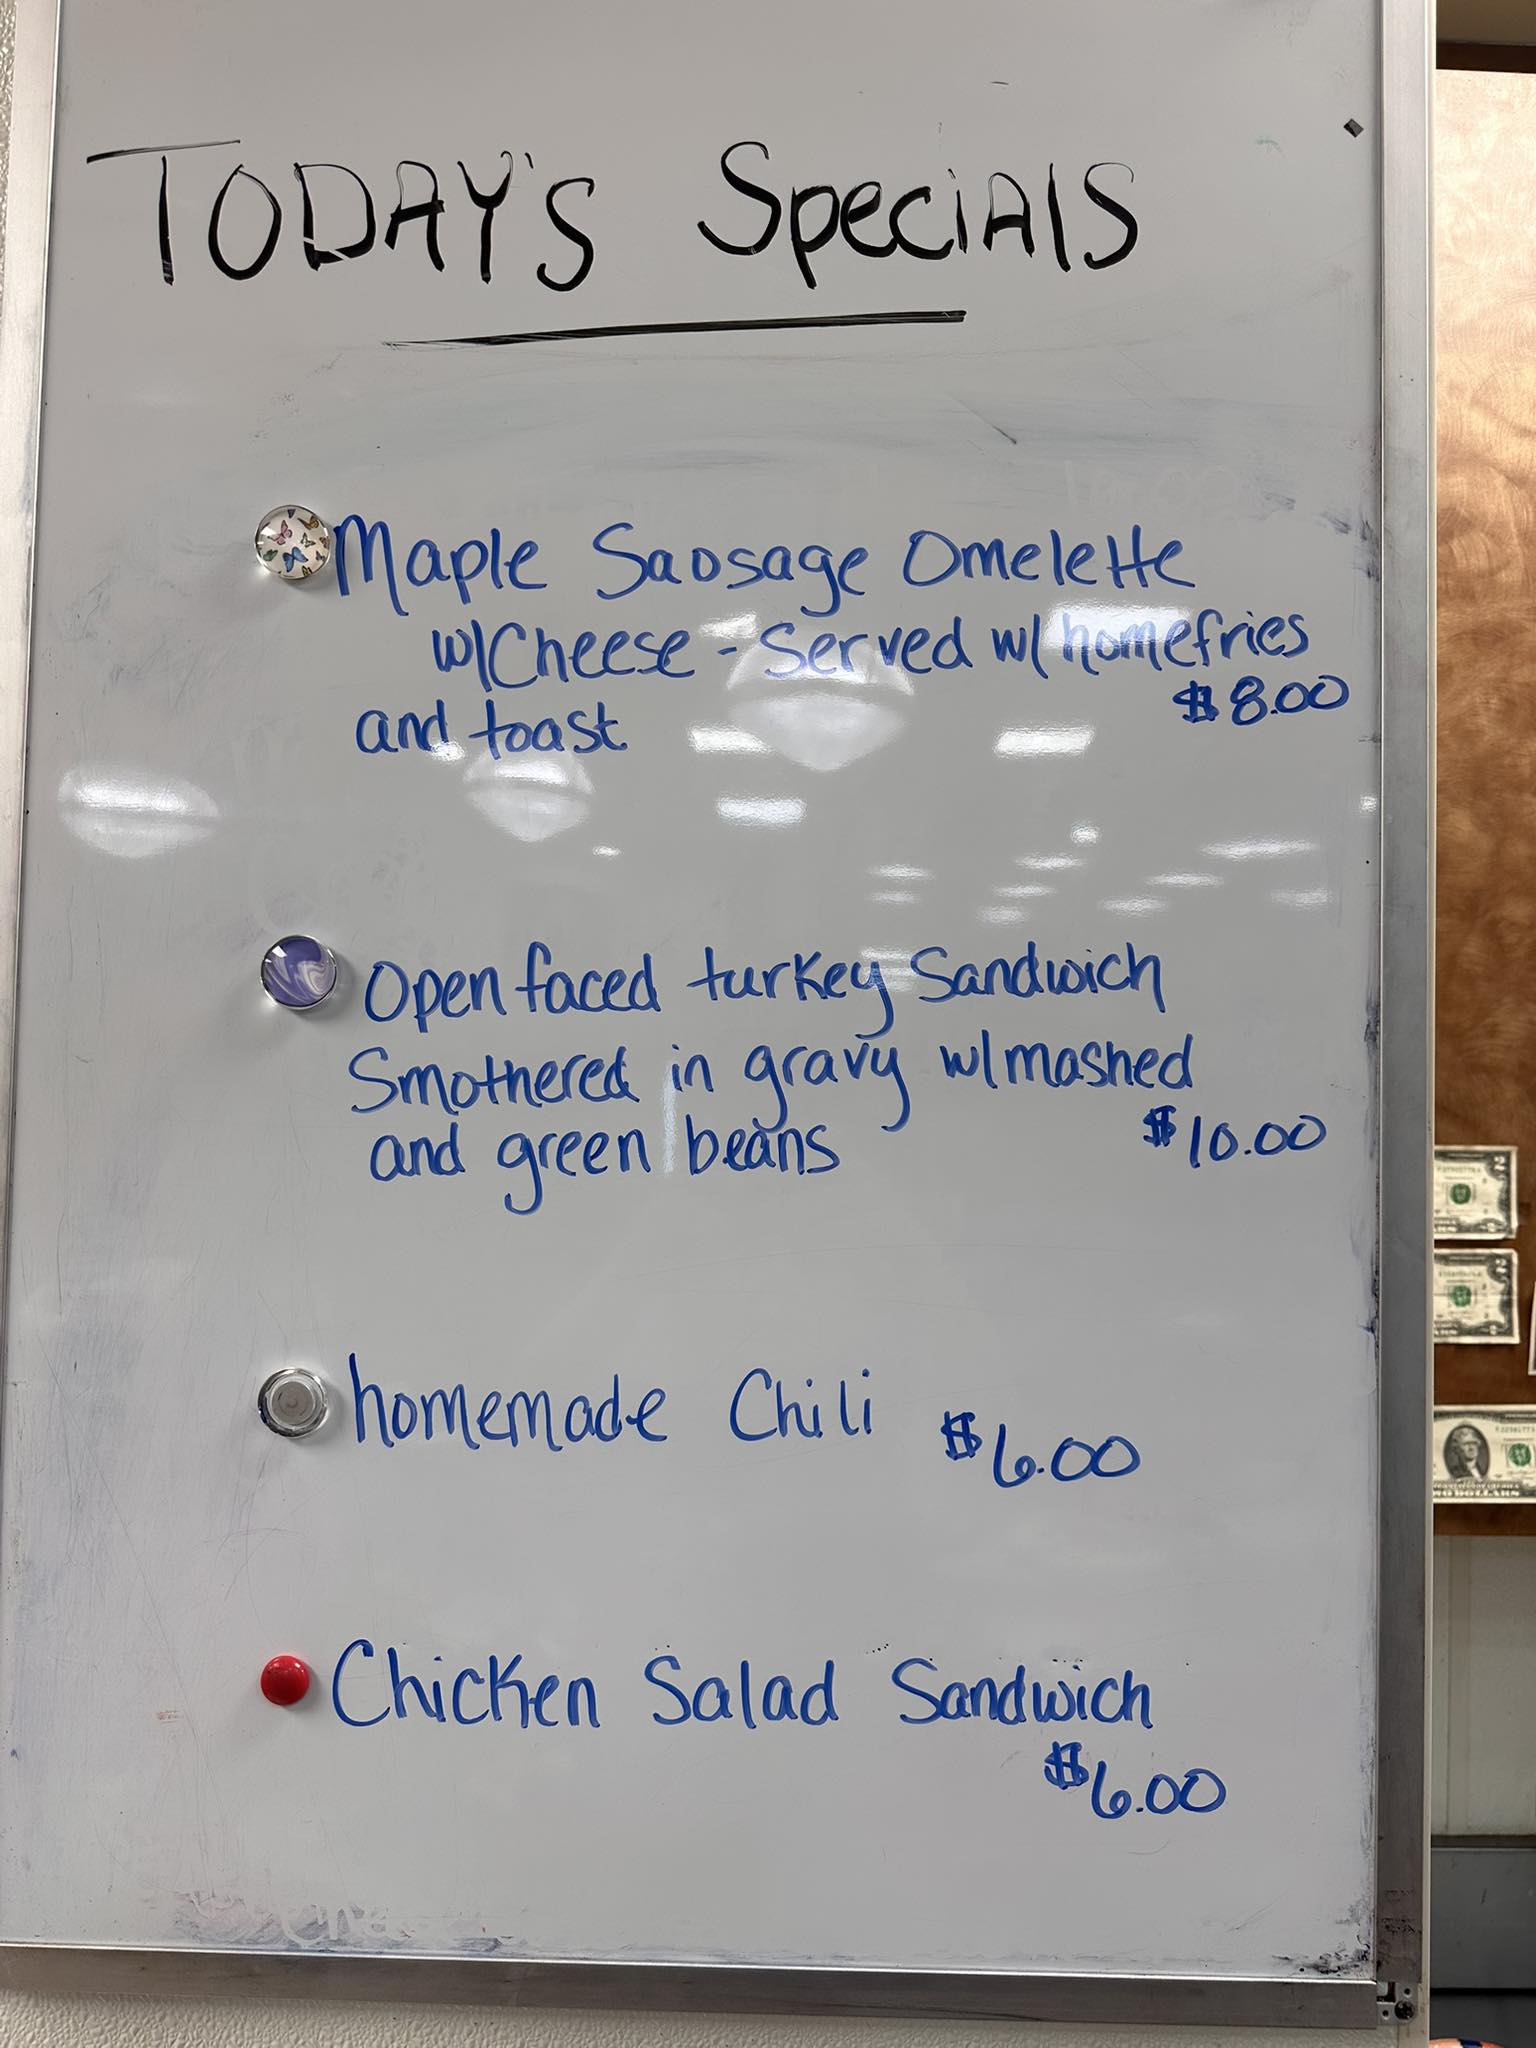 TODAY'S SpeciAlS
Maple Sausage Omelette
w/Cheese - Served w/ homefries
$8.00
and toast
Open faced turkey Sandwich
Smothered in gravy w/mashed
and green beans $10.00
homemade Chili $6.00
Chicken Salad Sandwich
$6.00